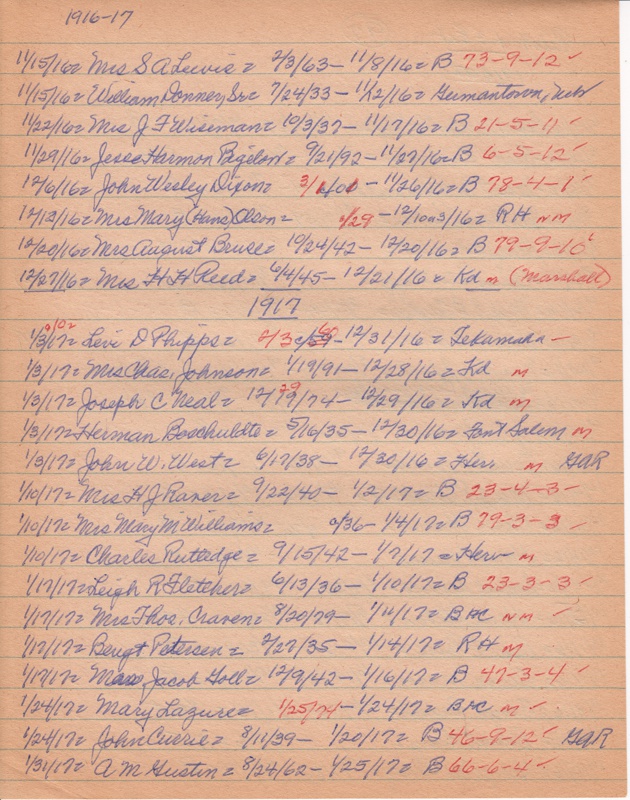 1916-17
11/15/16 = Mrs S A Lewis = 2/3/63 - 11/8/16 = B 73-9-12 ✓
11/15/16 = William Donney, Sr. = 7/24/33 - 11/12/16 = Germantown, Neb
11/22/16 = Mrs J F Wiseman = 10/3/37 - 11/17/16 = B 21-5-11 ✓
11/29/16 = Jesse Harmon Bigelow = 9/21/92 - 11/27/16 = B 6-5-12 ✓
12/6/16 = John Wesley Dixon = - 11/26/16 = B 78-4-1 ✓
12/13/16 = Mrs Mary (Hans) Olson = /29 - 12/10 /16 = R H NM
12/20/16 = Mrs August Bruse = 10/24/42 - 12/20/16 = B 79-9-10
12/27/16 = Mrs H H Reed = 6/4/45 - 12/21/16 = Kd m (Marshall)
1917
1/3/17 = Levi D Phipps = - 12/31/16 = Tekamah -
1/3/17 = Mrs Chas. Johnson = 1/19/91 - 12/28/16 = Kd m
1/3/17 = Joseph C Neal = 12/ /74 - 12/29/16 = Kd m
1/3/17 = Herman Boschuldte = 5/16/35 - 12/30/16 = Font Salem m
1/3/17 = John W. West = 6/17/38 - 12/30/16 = Her. m GAR
1/10/17 = Mrs H J Raver = 9/22/40 - 1/2/17 = B 23-4-3 -
1/10/17 = Mrs Mary M Williams = 0/36 - 1/4/17 = B 79-3-3 ✓
1/10/17 = Charles Rutledge = 9/15/42 - 1/7/17 = Her m
1/17/17 = Leigh R Fletcher = 6/13/36 - 1/10/17 = B 23-3-3 ✓
1/17/17 = Mrs Thos. Craven = 8/20/79 - 1/14/17 = B HC NM ✓
1/17/17 = Bengt Petersen = 2/27/35 - 1/14/17 = R H m
1/17/17 = Jacob Holl = 12/9/42 - 1/16/17 = B 47-3-4 ✓
1/24/17 = Mary Lazure = 1/25/74 - 1/24/17 = B HC m ✓
1/24/17 = John Currie = 8/11/39 - 1/20/17 = B 46-9-12 ✓ GAR
1/31/17 = A M Gustin = 8/24/62 - 1/25/17 = B 66-6-4 ✓